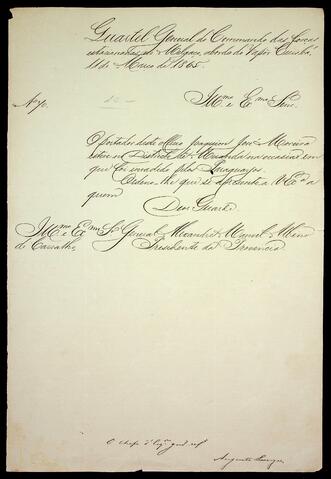 Quartel General do Commando das forças
estacionadas no Melgaço, abordo do Vapor Cuiabá,
11 de Março de 1865.
Nº 70.
Illmo e Exmo Senr.
O portador deste officio Joaquim José Moreira
esteve no Districto de Miranda na occasião em
que foi invadido pelos Paraguayos.
Ordeno-lhe que se apresente a V. Exª a
quem
Deos Guarde
Illmo e Exmo Sr General Alexandre Manuel Albino
de Carvalho,
Presidente da Provincia
O Chefe
Augusto Leverger